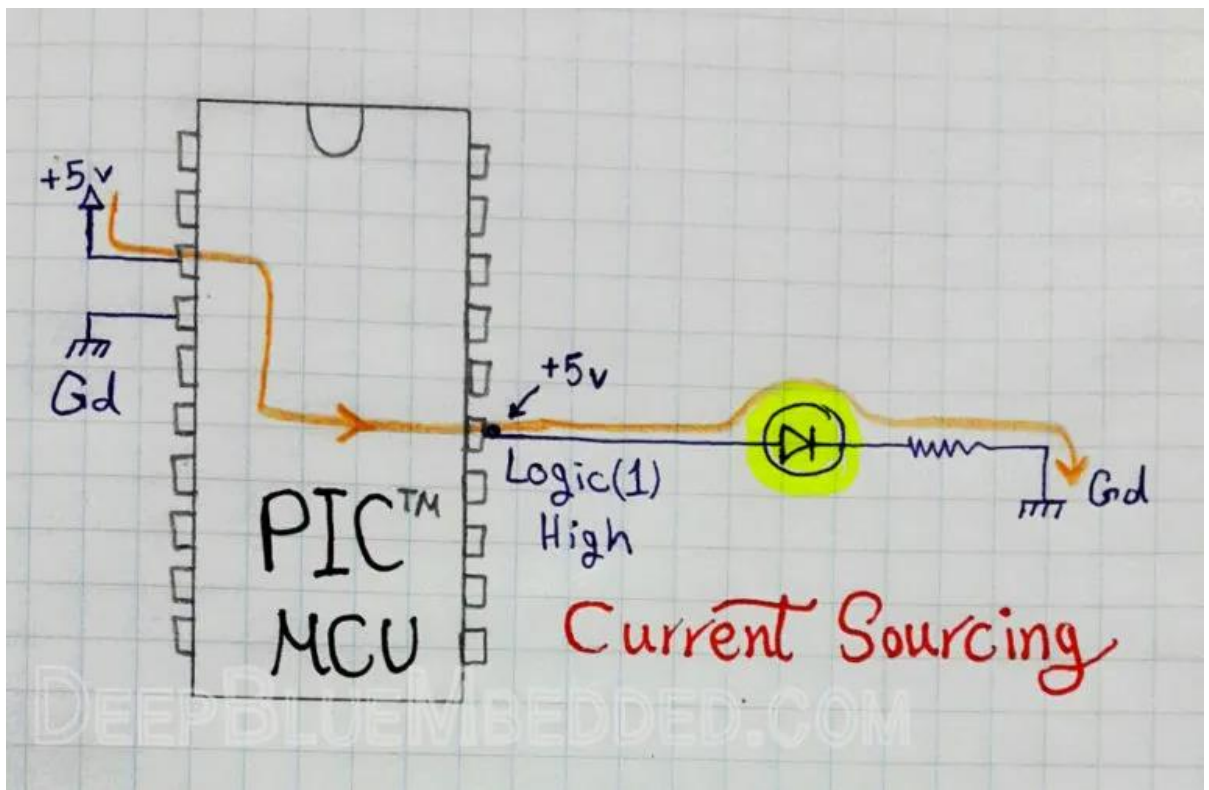 +5v
Gd
+5v
Logic(1)
High
Gd
PIC™
MCU
Current Sourcing
DEEPBLUEMBEDDED.COM